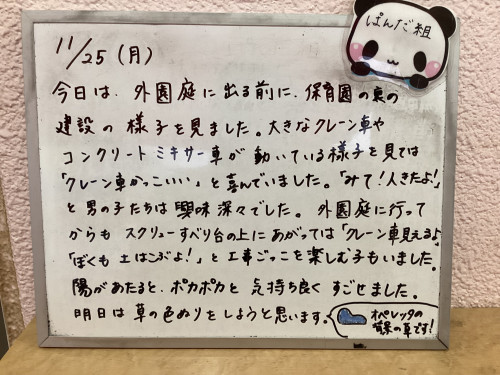 ぱんだ組
11/25 (月)
今日は、外園庭に出る前に、保育園の裏の
建設の様子を見ました。大きなクレーン車や
コンクリートミキサー車が動いている様子を見ては
「クレーン車かっこいい」と喜んでいました。「みて!人きたよ!」
と男の子たちは興味深々でした。外園庭に行って
からもスクリューすべり台の上にあがっては「クレーン車見えるよ」
「ぼくも土はこぶよ!」と工事ごっこを楽しむ子もいました。
陽があたると、ポカポカと気持ち良くすごせました。
明日は草の色ぬりをしようと思います。
オペレッタの
背景の草です!